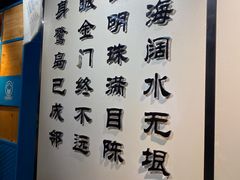 海阔水无垠
明珠满目陈
金门终不远
身鹭岛已成邻